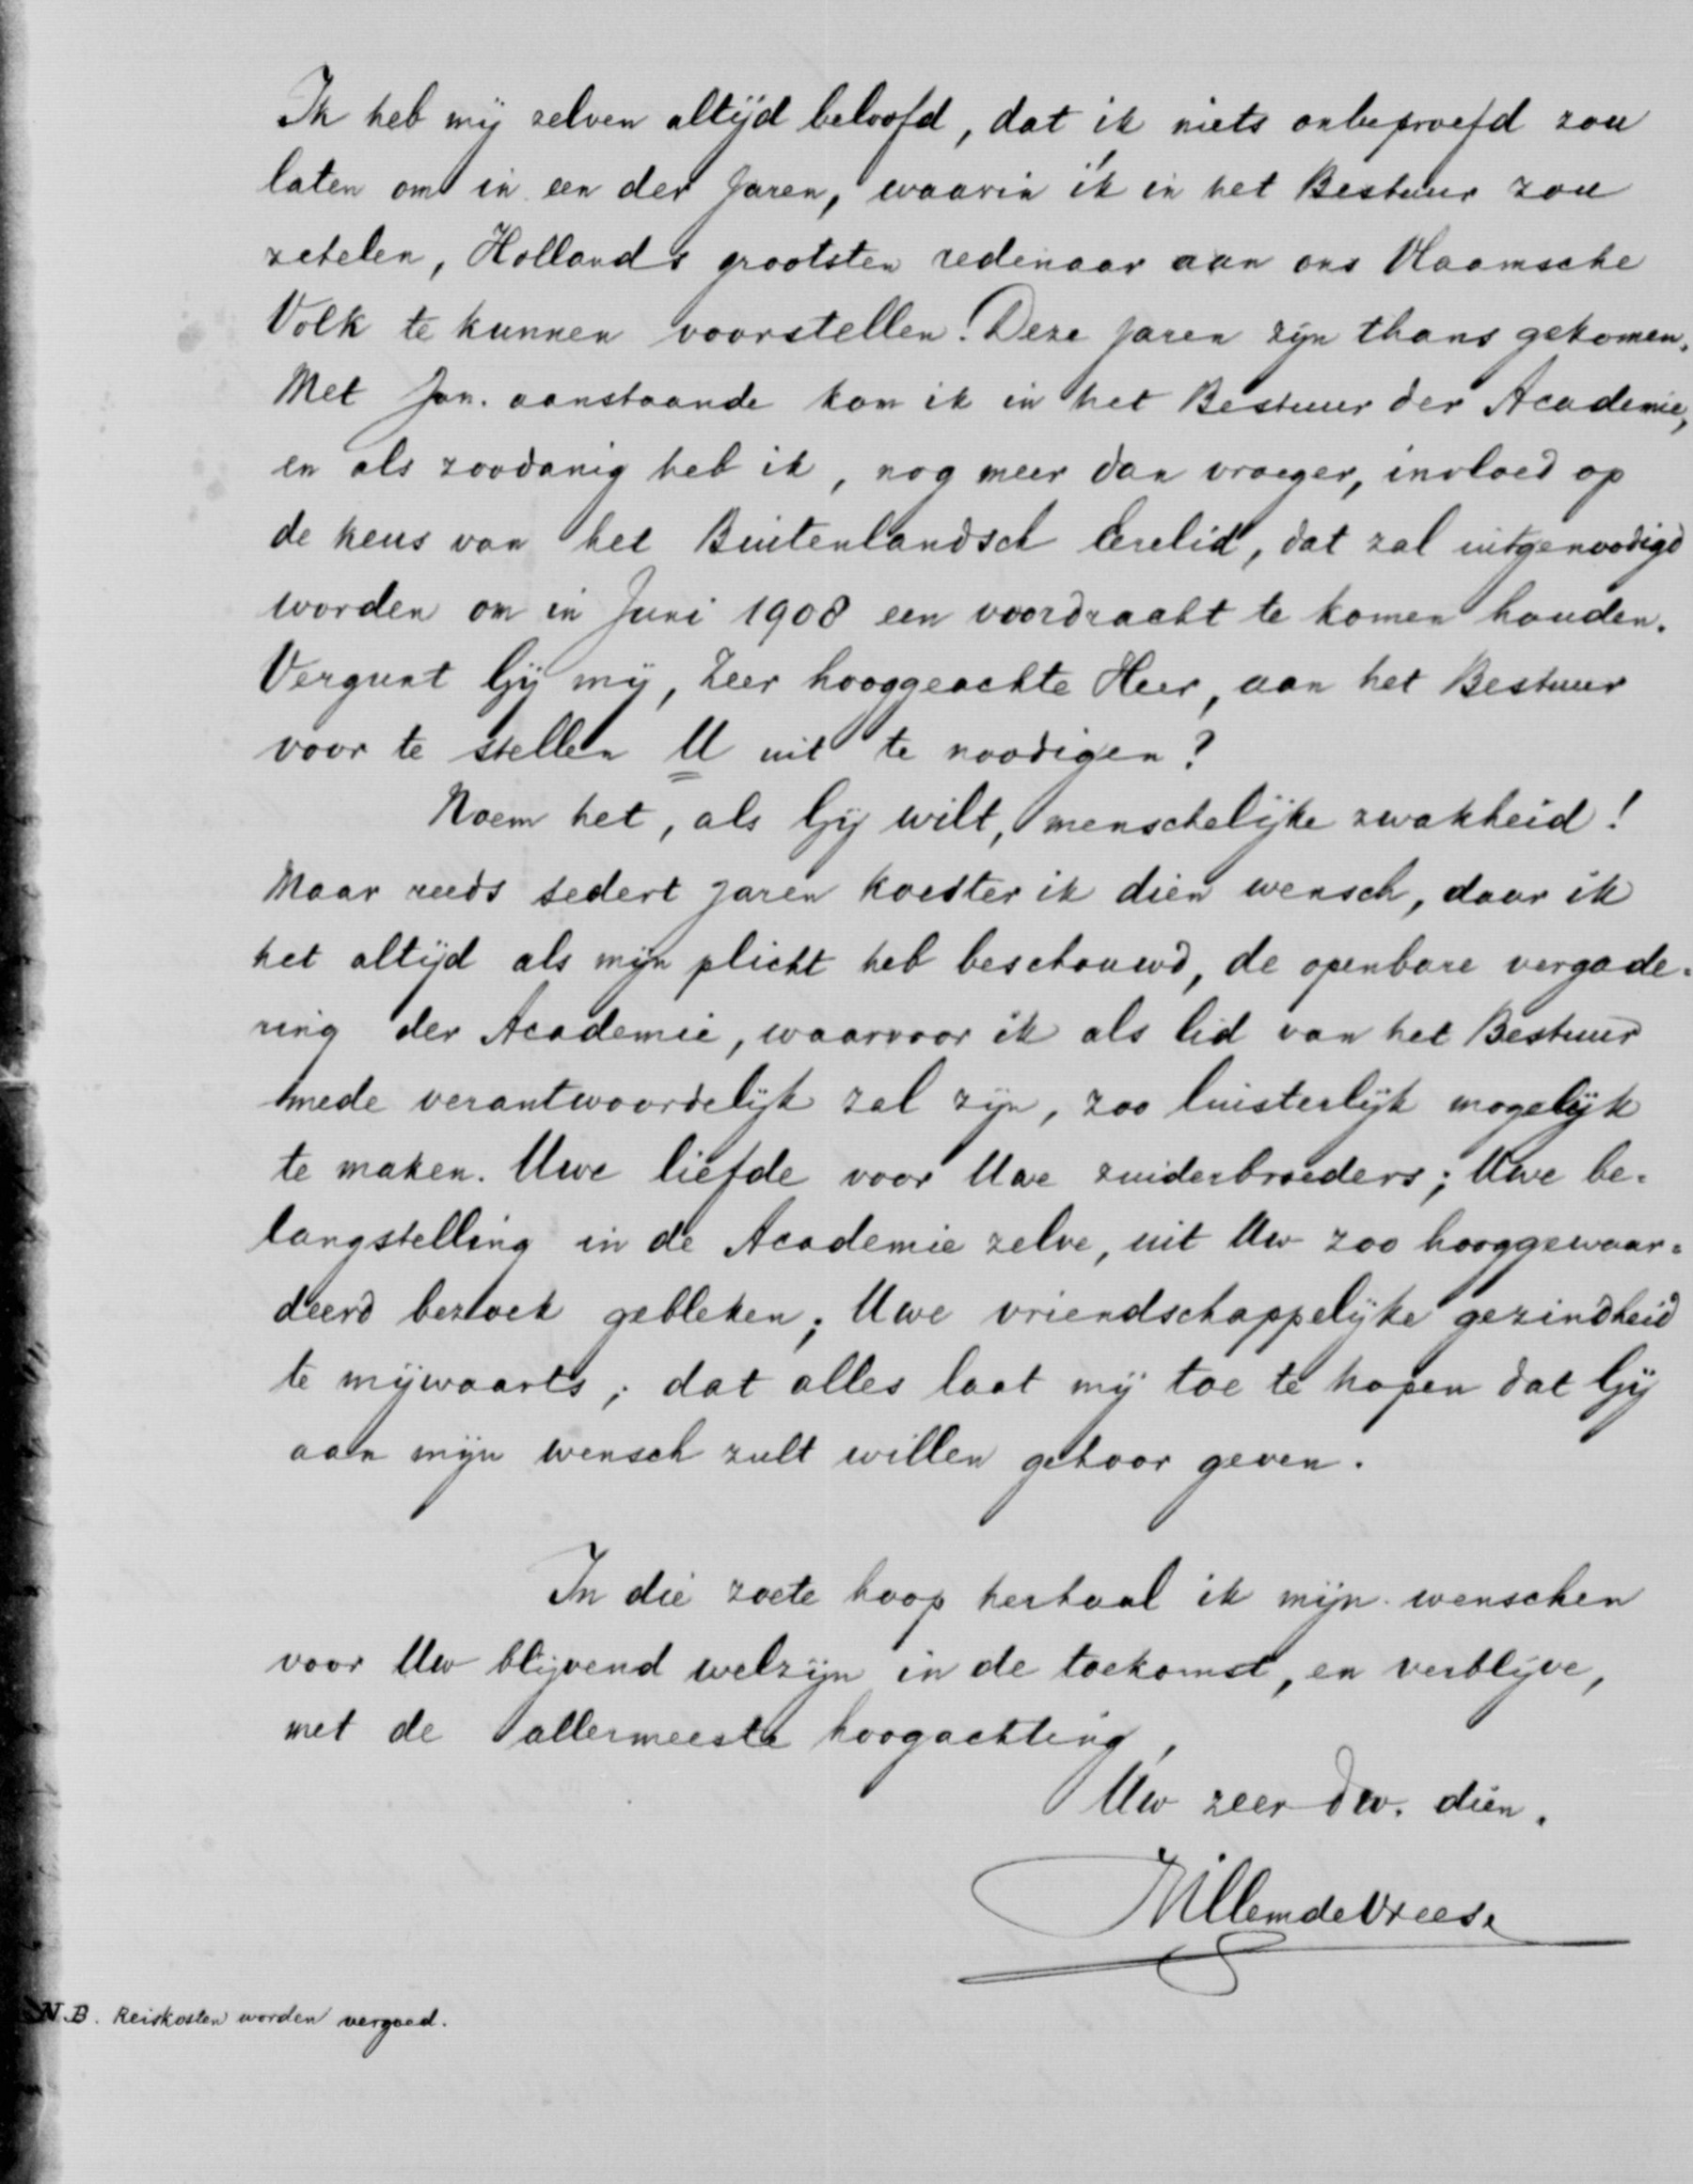 Ik heb mij zelven altijd beloofd, dat ik niets onbeproefd zou
laten om in een der jaren, waarin ik in het Bestuur zou
zetelen, Hollands grootsten redenaar aan ons Vlaamsche
Volk te kunnen voorstellen. Deze jaren zijn thans gekomen.
Met Jan. aanstaande kom ik in het Bestuur der Academie,
en als zoodanig heb ik, nog meer dan vroeger, invloed op
de keus van het Buitenlandsch Eerelid, dat zal uitgenoodigd
worden om in Juni 1908 een voordracht te komen houden.
Vergunt Gij mij, Zeer hooggeachte Heer, aan het Bestuur
voor te stellen U uit te noodigen?
Noem het, als Gij wilt, menschelijke zwakheid!
Maar reeds sedert jaren koester ik dien wensch, daar ik
het altijd als mijn plicht heb beschouwd, de openbare vergade=
ring der Academie, waarvoor ik als lid van het Bestuur
mede verantwoordelijk zal zijn, zoo luisterlijk mogelijk
te maken. Uwe liefde voor Uwe zuiderbroeders; Uwe be=
langstelling in de Academie zelve, uit Uw zoo hooggewaar=
deerd bezoek gebleken; Uwe vriendschappelijke gezindheid
te mijwaarts; dat alles laat mij toe te hopen dat Gij
aan mijn wensch zult willen gehoor geven.
In die zoete hoop herhaal ik mijn wenschen
voor Uw blijvend welzijn in de toekomst, en verblijve,
met de allermeeste hoogachting,
Uw zeer dw. dien.
Willem de Vreese
N.B. Reiskosten worden vergoed.